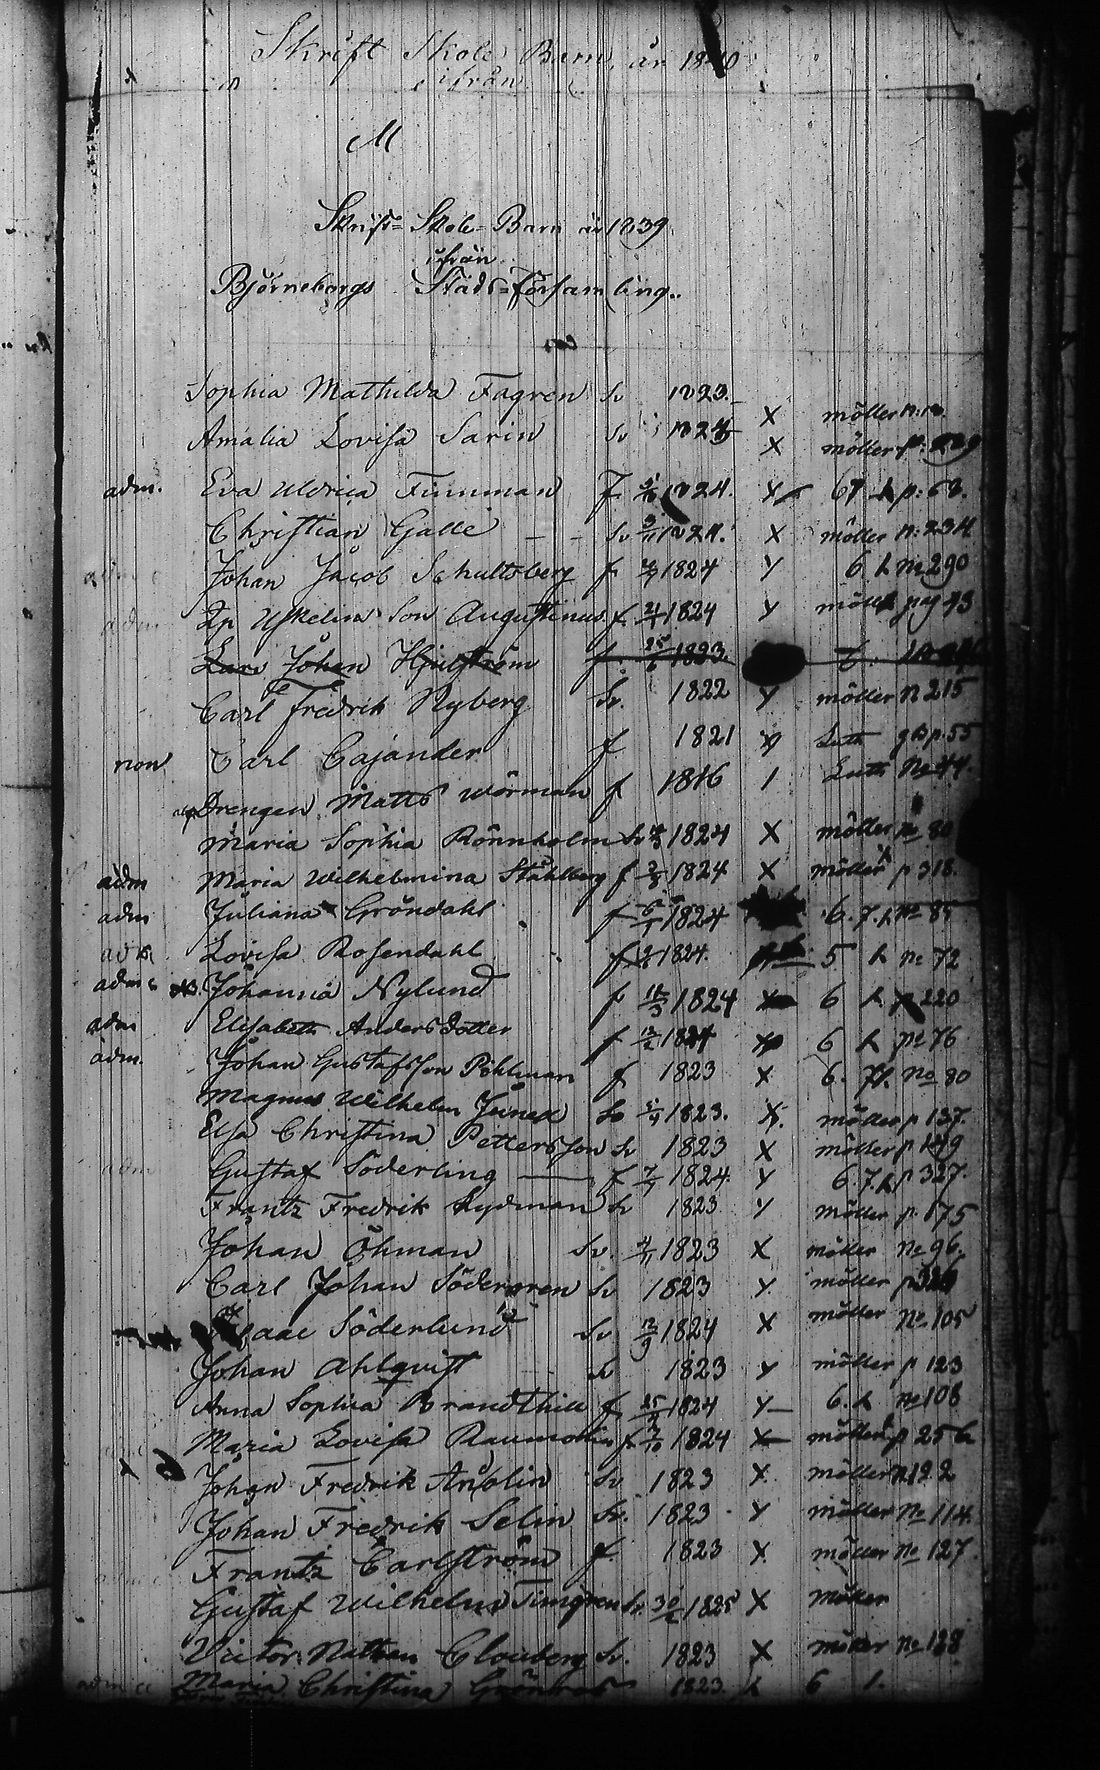 Skrift Skole Barn år 1840
ifrån
M
Skrift- Skole- Barn år 1839
ifrån
Björneborgs Stads-Församling..
Sophia Mathilda Fagren Sv 1823. X möller
Amalia Lovisa Sarin Sv 1824 X möller
adm. Eva Uldrica Finnman f 1824. Y 67 p: 63.
Christian Galle - - Sv 1824. X möller n: 234
Johan Jacob Schultsberg f 1824 Y 6 h No 290
Son Augustinus f. 1824 Y 73
Lars Johan Hjulström f. 25/6 1823 6.
Carl Fredrik Nyberg Sv. 1822 Y möller N 215
Carl Cajander f 1821 Luth p. 55
Drengen Matts Wörman f 1816 / Luth No 44.
Maria Sophia Rönnholm Sv 1824 X möller No 80
adm Maria Wilhelmina Ståhlberg f 1824 X möller p 318.
adm Juliana Gröndahl f 1824 6. 7. h No 85
Lovisa Rosendahl f 1824. 5 h No 72
adm Johanna Nylund f 1824 6 h 220
adm Elisabeth Andersdotter f 1824 6 h No 76
adm. Johan Gustafsson Pihlman f 1823 X 6. No 80
Magnus Wilhelm Sv 1823. X. möller p 137.
Elsa Christina Pettersson Sv 1823 X möller p 149
Gustaf Söderling — f 1824. Y 6. 7. h p 327.
Frantz Fredrik Rydman Sv 1823 Y möller p. 175
Johan Öhman Sv. 4/11 1823 X möller No 96.
Carl Johan Södergren Sv 1823 Y. möller
Isaac Söderlund Sv 1824 X möller No. 105
Johan Ahlqvist Sv 1823 Y möller p 123
Anna Sophia Brandthill f 1824 Y — 6. h No 108
Maria Lovisa Raumolin f 1824 X möller p 256
Johan Fredrik Sv 1823 X möller 122
Johan Fredrik Selin Sv. 1823 Y möller No 114.
Frantz Carlström f. 1823 X möller No 127
Gustaf Wilhelm Timgren Sv 1825 X möller
Victor Nathan Clouberg Sv. 1823 X möller No 128
Maria Christina 1823. 6